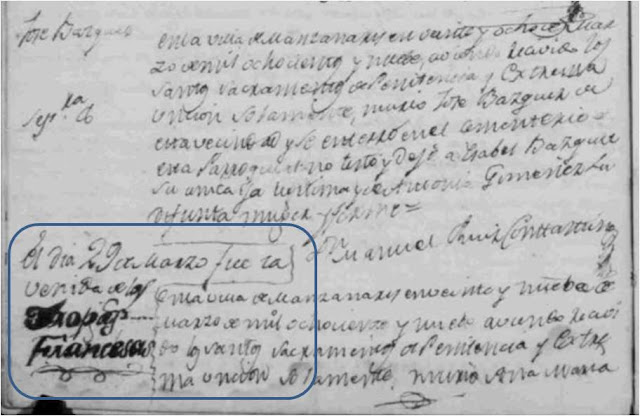 Jose Bazquez
en la villa de Manzanares en veinte y ocho de Mar
zo de mil ochocientos y nuebe, aviendo recivido los
Santos Sacramentos de Penitencia y Extrema
Uncion solamente, murio Jose Bazquez de
esta vecindad y se enterro en el cementerio de
esta Parroquia no testo y dejo a Isabel Bazquez
su unica hija lexitima y de Antonia Gimenez su
difunta muger y firme=
Manuel Ruiz Constantino
El dia 29 de Marzo fue la
venida de los
Tropas
Francesas
En la villa de Manzanares en veinte y nuebe de
marzo de mil ochocientos y nuebe aviendo recivi
do los santos Sacramentos de Penitencia y Extre
ma uncion solamente, murio Ana Maria